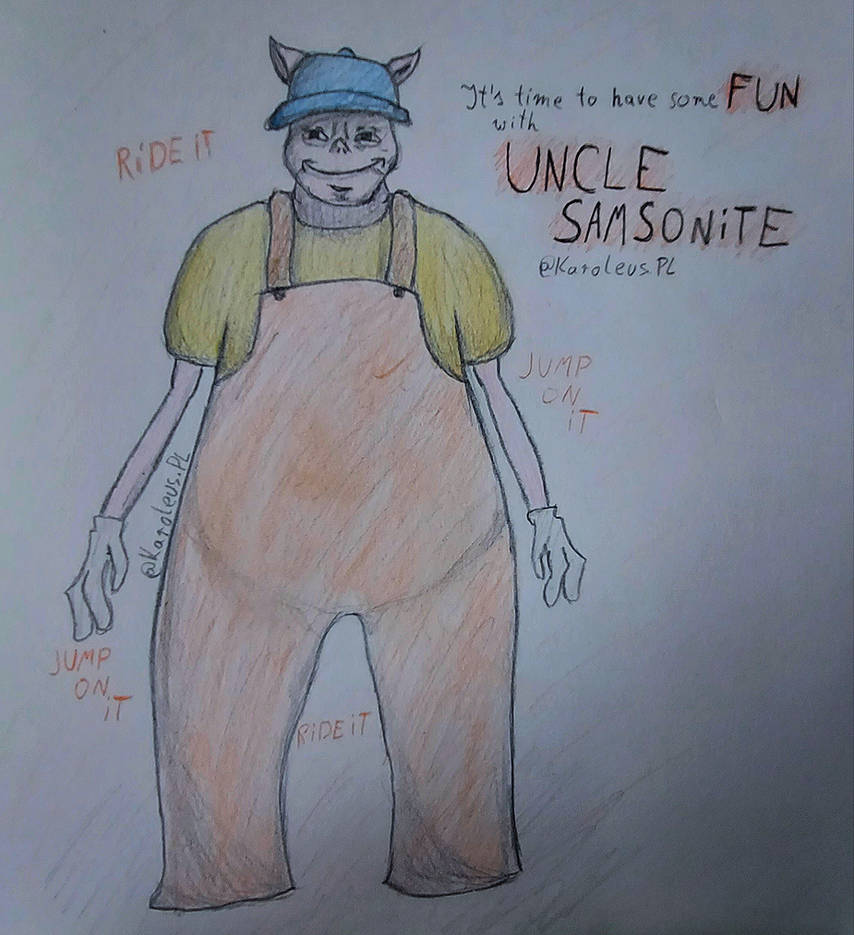 It's time to have some FUN
with
UNCLE
SAMSONiTE
@Karoleus.PL
RiDE iT
JUMP
ON
iT
@Karoleus.PL
JUMP
ON
iT
RiDE iT